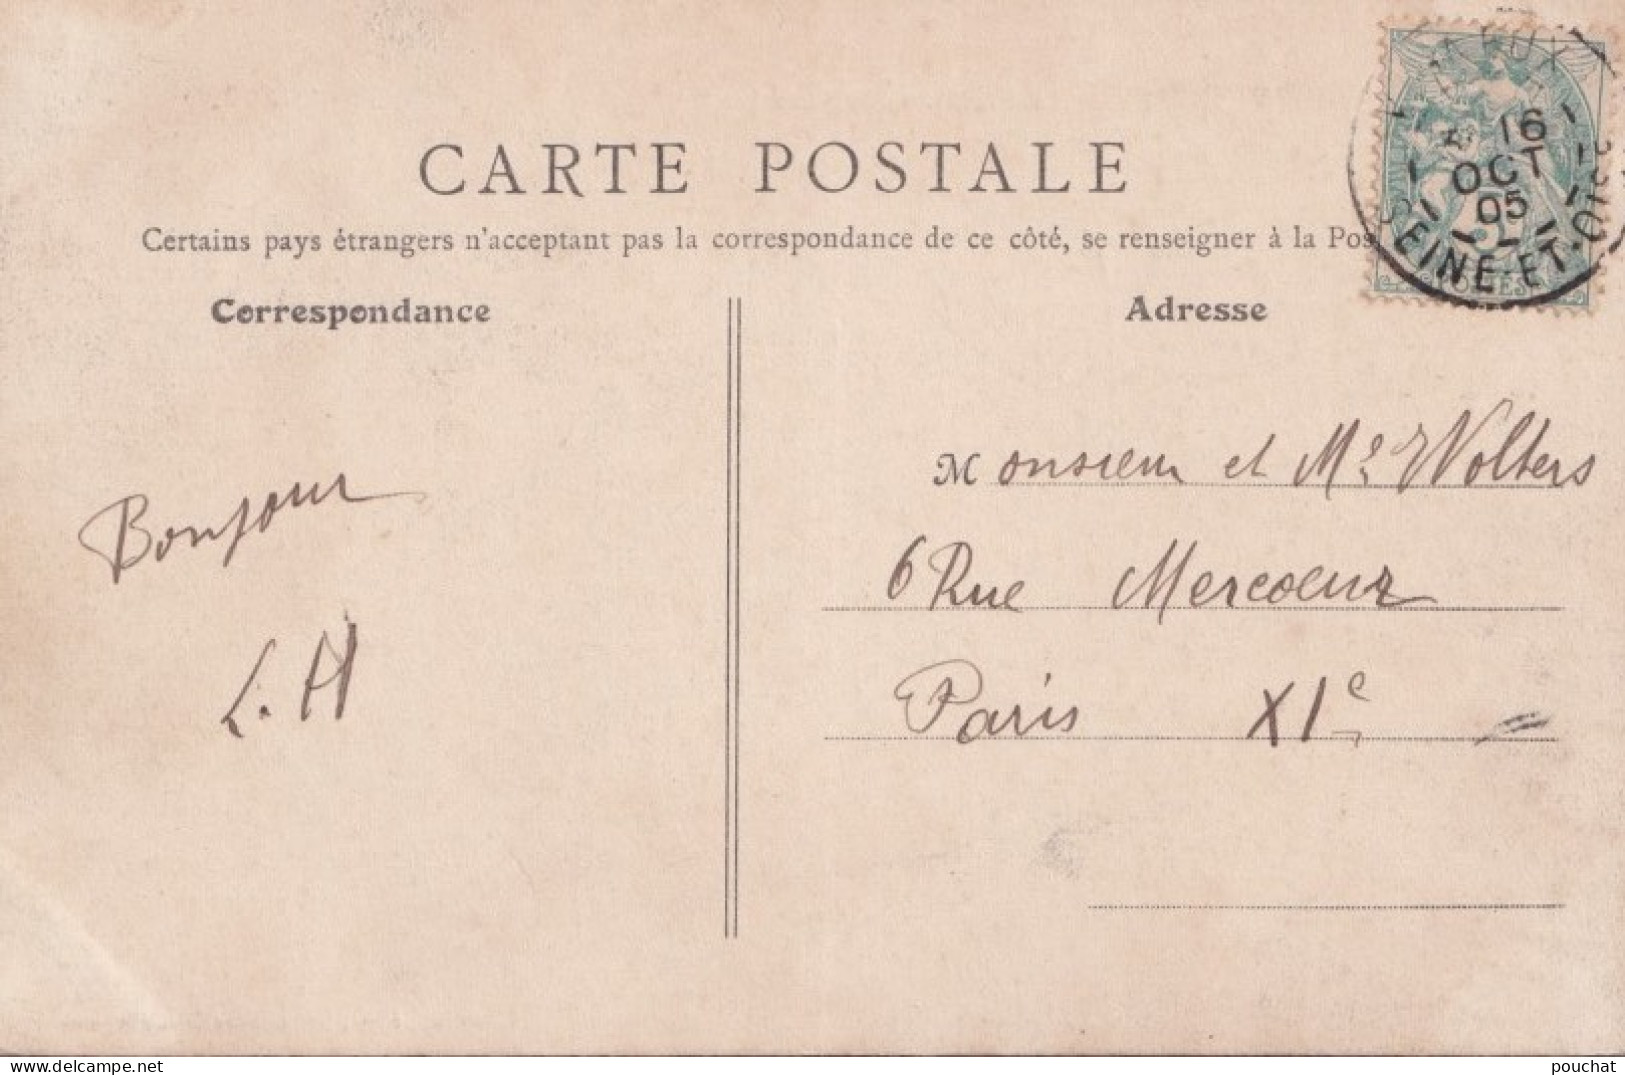 CARTE POSTALE
Certains pays étrangers n'acceptant pas la correspondance de ce côté, se renseigner à la Pos
16
OCT
05
SEINE-ET-OISE
Correspondance
Adresse
Bonjour
L. H
Monsieur et Me Wolters
6 Rue Mercoeur
Paris XIe
delcampe.net
pouchat